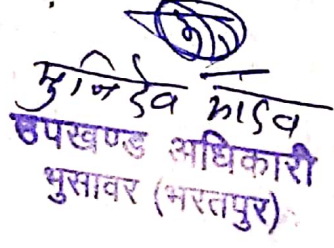 मुनिदेव यादव
उपखण्ड अधिकारी
भुसावर (भरतपुर)